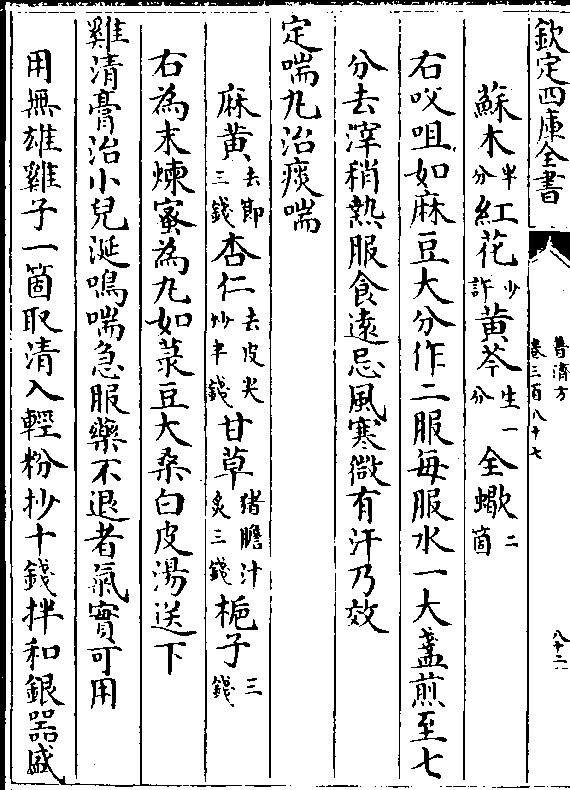 欽定四庫全書
普濟方
卷三百八十七
八十二
蘇木半分紅花少許黄芩生一分全蠍二箇
右㕮咀如麻豆大分作二服每服水一大盞煎至七
分去滓稍熱服食遠忌風寒微有汗乃效
定喘丸治痰喘
麻黄去節三錢杏仁去皮尖炒半錢甘草猪膽汁炙三錢梔子三錢
右為末煉蜜為丸如菉豆大桑白皮湯送下
雞清膏治小兒涎鳴喘急服藥不退者氣實可用
用無雄雞子一箇取清入輕粉抄十錢拌和銀器盛